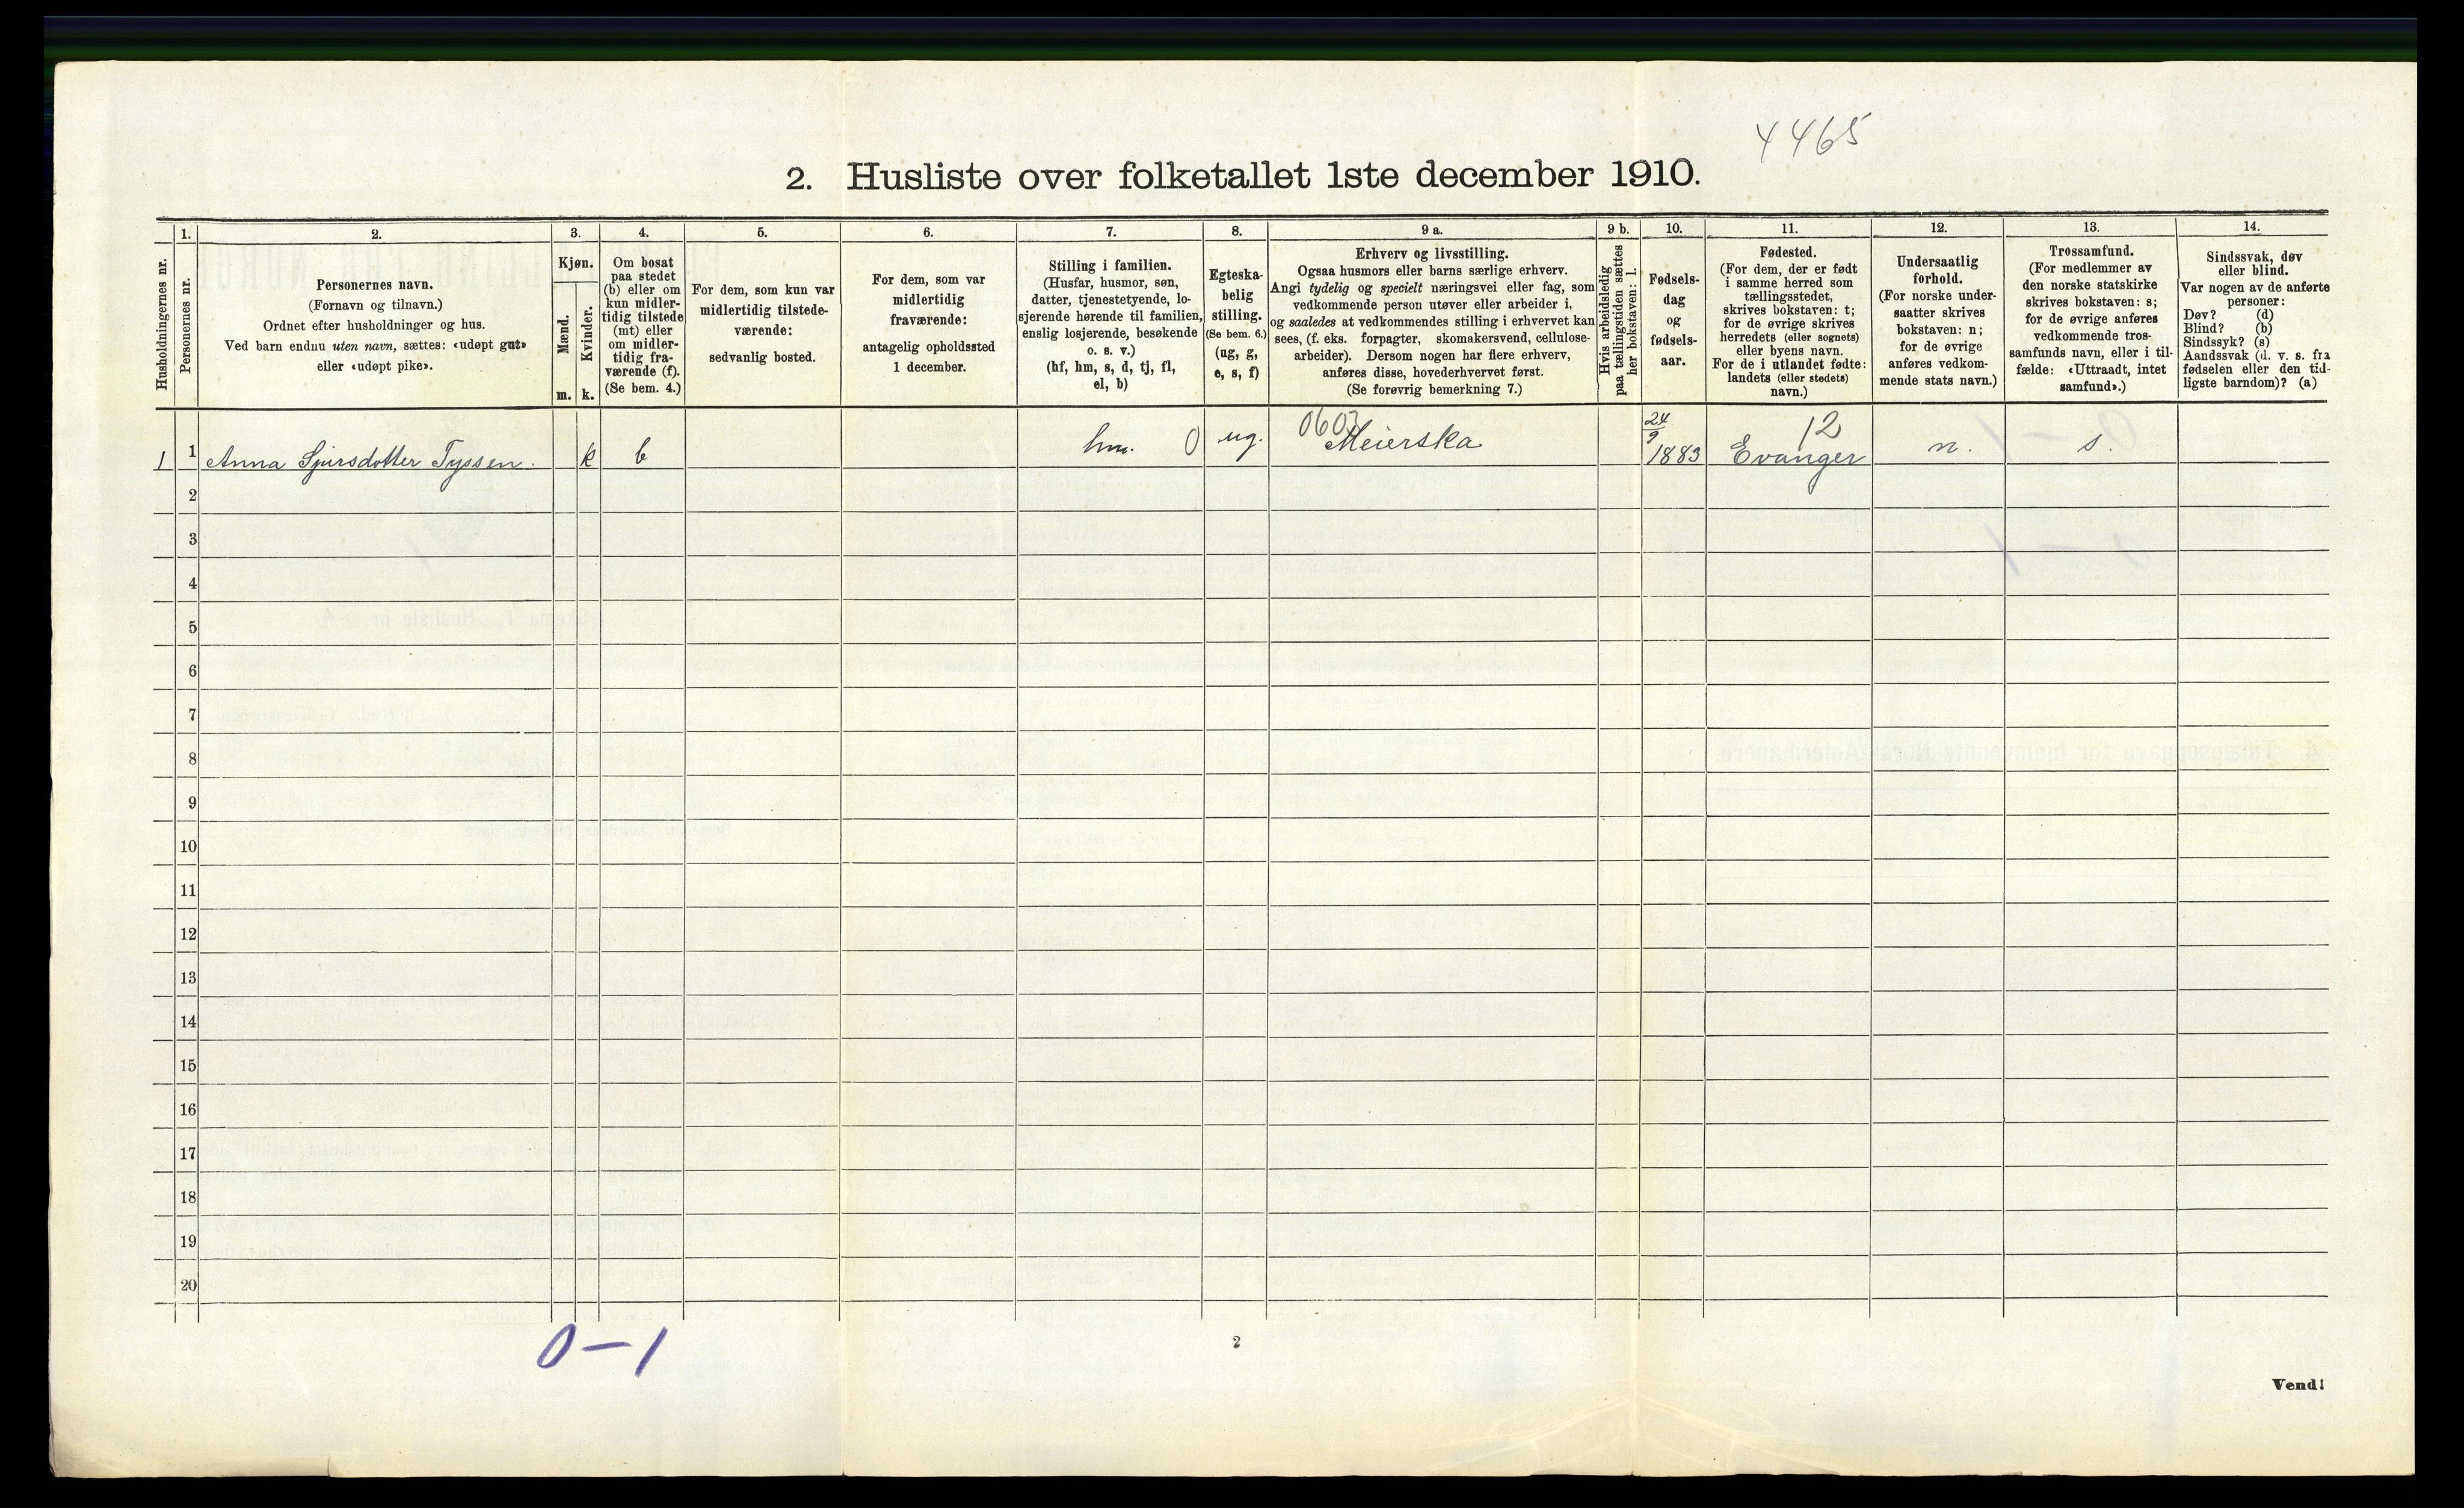 4465
2. Husliste over folketallet 1ste december 1910.
Husholdningernes nr.
1.
Personernes nr.
2.
Personernes navn.
(Fornavn og tilnavn.)
Ordnet efter husholdninger og hus.
Ved barn endnu uten navn, sættes: «udøpt gut»
eller «udøpt pike».
3.
Kjøn.
Mænd.
Kvinder.
m. k.
4.
Om bosat
paa stedet
(b) eller om
kun midler-
tidig tilstede
(mt) eller
om midler-
tidig fra-
værende (f).
(Se bem. 4.)
5.
For dem, som kun var
midlertidig tilstede-
værende:
sedvanlig bosted.
6.
For dem, som var
midlertidig
fraværende:
antagelig opholdssted
1 december.
7.
Stilling i familien.
(Husfar, husmor, søn,
datter, tjenestetyende, lo-
sjerende hørende til familien,
enslig losjerende, besøkende
o. s. v.)
(hf, hm, s, d, tj, fl,
el, b)
8.
Egteska-
belig
stilling.
(Se bem. 6.)
(ug, g,
e, s, f)
9 a.
Erhverv og livsstilling.
Ogsaa husmors eller barns særlige erhverv.
Angi tydelig og specielt næringsvei eller fag, som
vedkommende person utøver eller arbeider i,
og saaledes at vedkommendes stilling i erhvervet kan
sees, (f. eks. forpagter, skomakersvend, cellulose-
arbeider). Dersom nogen har flere erhverv,
anføres disse, hovederhvervet først.
(Se forøvrig bemerkning 7.)
9 b.
Hvis arbeidsledig
paa tællingstiden sættes
her bokstaven: l.
10.
Fødsels-
dag
og
fødsels-
aar.
11.
Fødested.
(For dem, der er født
i samme herred som
tællingsstedet,
skrives bokstaven: t;
for de øvrige skrives
herredets (eller sognets)
eller byens navn.
For de i utlandet fødte:
landets (eller stedets)
navn.)
12.
Undersaatlig
forhold.
(For norske under-
saatter skrives
bokstaven: n;
for de øvrige
anføres vedkom-
mende stats navn.)
13.
Trossamfund.
(For medlemmer av
den norske statskirke
skrives bokstaven: s;
for de øvrige anføres
vedkommende tros-
samfunds navn, eller i til-
fælde: «Uttraadt, intet
samfund».)
14.
Sindssvak, døv
eller blind.
Var nogen av de anførte
personer:
Døv? (d)
Blind? (b)
Sindssyk? (s)
Aandssvak (d. v. s. fra
fødselen eller den tid-
ligste barndom)? (a)
1 1 Anna Sjursdotter Tyssen. k b hm. 0 ug. 0603 Meierska 24/9 1883 12 Evanger n. s.
2
3
4
5
6
7
8
9
10
11
12
13
14
15
16
17
18
19
20
0 – 1
2
Vend!